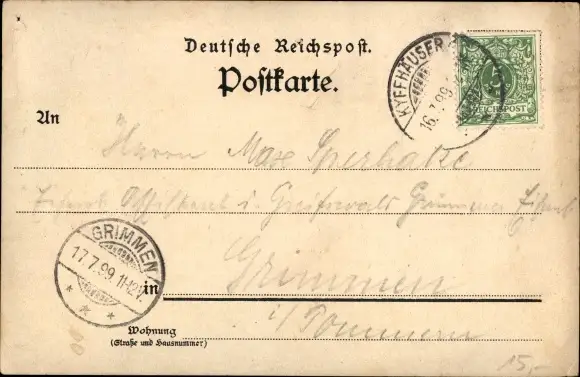 Deutsche Reichspost.
Postkarte.
KYFFHÄUSER
16.7.99
REICHSPOST
An
Herrn Max
i. Greifswald Grimmener
GRIMMEN
17.7.99. 11-12V.
in
Grimmen
i/Pommern
Wohnung
(Straße und Hausnummer)
15,-